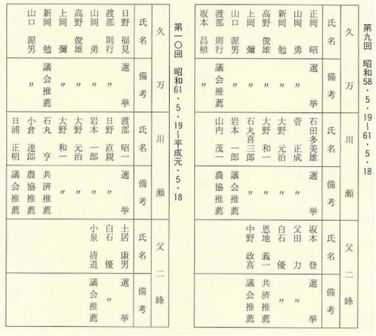 第九回 昭和58・5・19～61・5・18
久万
氏名 備考
正岡 昭 選挙
新岡 勉 〃
上岡 彌 〃
高野 俊雄 〃
山岡 勇 〃
渡部 則行 〃
坂本 昌植 〃
川瀬
氏名 備考
石田多美雄 選挙
菅 正成 〃
大野 元治 〃
大野 和一 〃
石丸喜三郎 〃
岩本 一郎 〃
山内 茂一 農協推薦
父二峰
氏名 備考
坂本 登 選挙
父田 力 〃
白石 優 〃
恩地 義一 共済推薦
中野 政喜 議会推薦
第一〇回 昭和61・5・19～平成元・5・18
久万
氏名 備考
日野 福見 選挙
渡部 則行 〃
山岡 勇 〃
高野 俊雄 〃
上岡 彌 〃
新岡 勉 議会推薦
山口 源男 〃
川瀬
氏名 備考
渡部 昭一 選挙
日野 直親 〃
岩本 一郎 〃
大野 元治 〃
大野 和一 〃
石丸 亨 共済推薦
小倉 達郎 農協推薦
日浦 正明 議会推薦
父二峰
氏名 備考
土居 康男 選挙
白石 優 〃
小泉 清道 議会推薦